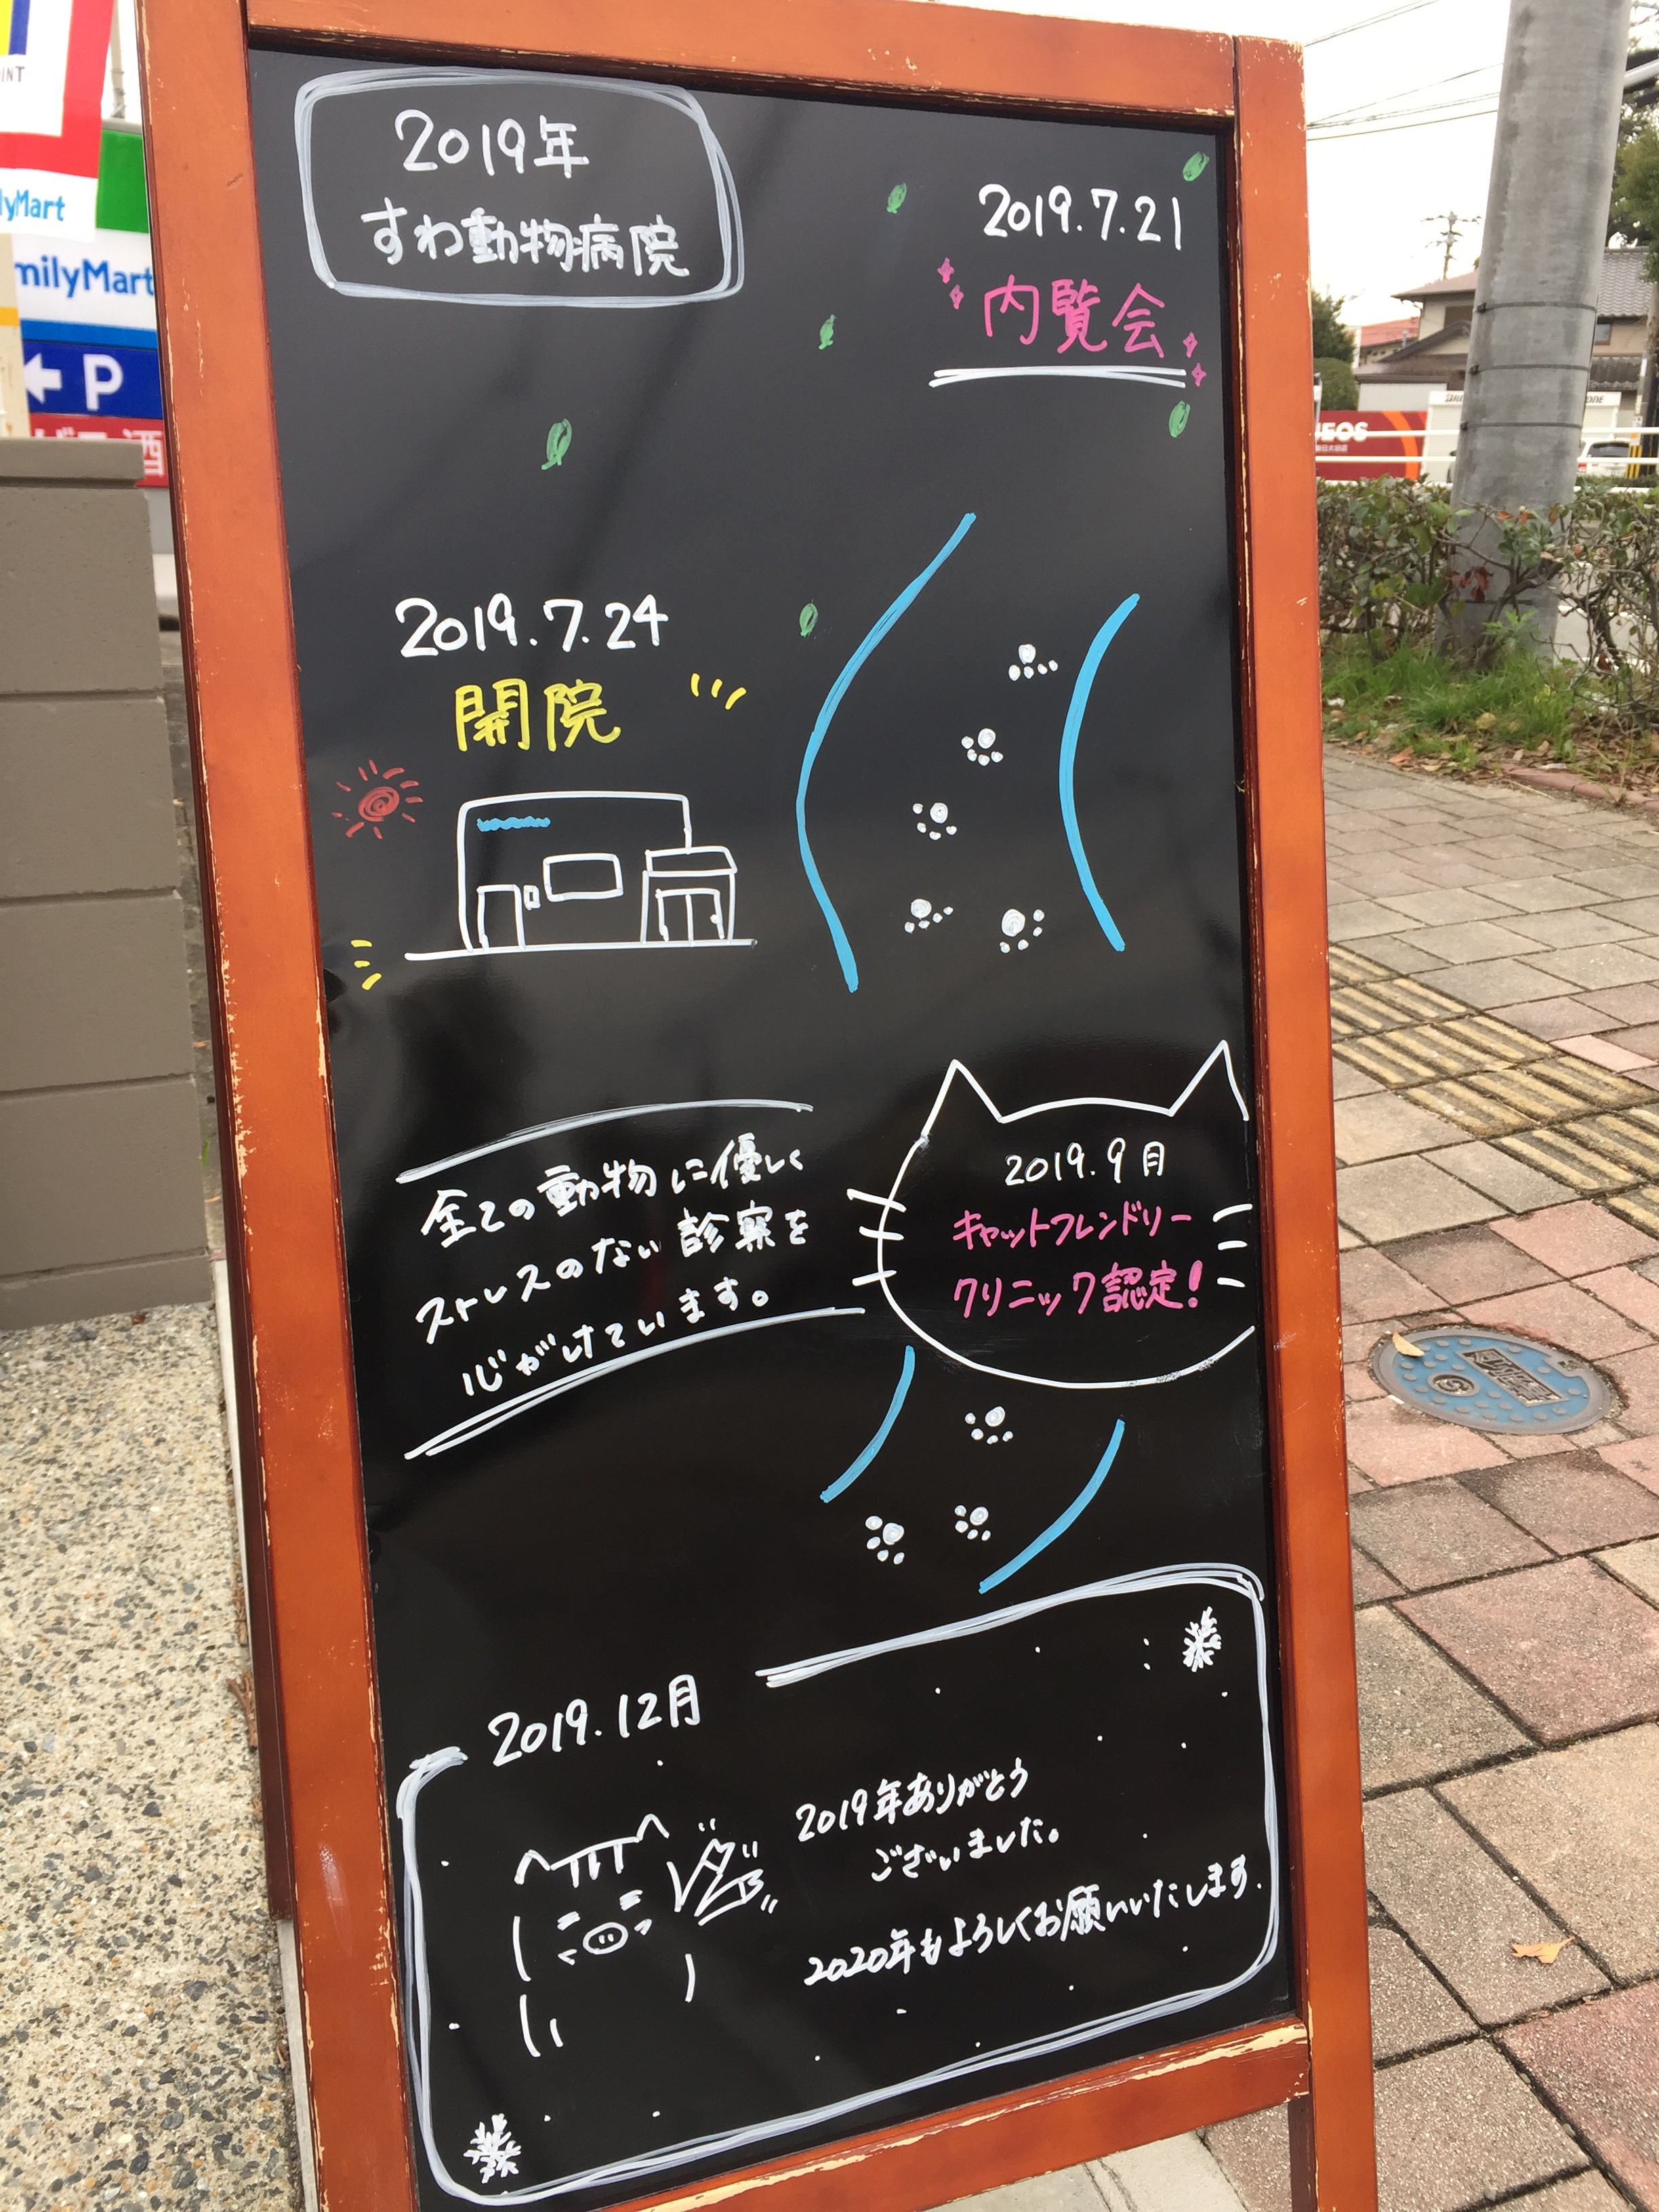 INT
lyMart
milyMart
← P
酒
2019年
すわ動物病院
2019.7.21
内覧会
2019.7.24
開院
全ての動物に優しく
ストレスのない診察を
心がけています。
2019.9月
キャットフレンドリー
クリニック認定!
2019.12月
2019年ありがとう
ございました。
2020年もよろしくお願いいたします.
NEOS